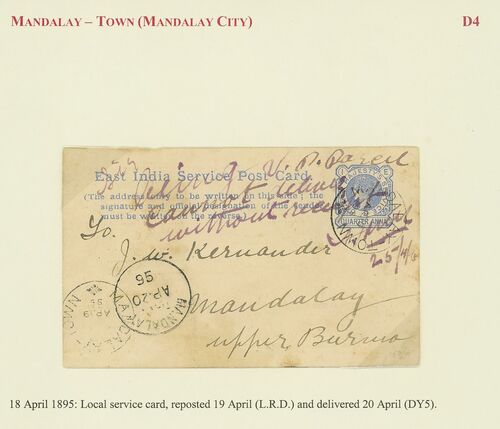 MANDALAY – TOWN (MANDALAY CITY)
D4
V. P. Parcel
East India Service Post Card
(The address only to be written on this side; the
signature and official designation of the sender
must be written on the reverse.)
without
QUARTER ANNA
25/4/
To.
J. W. Kernander
Mandalay
upper Burma
MANDALAY
AP.20
95
TOWN
AP.19
95
18 April 1895: Local service card, reposted 19 April (L.R.D.) and delivered 20 April (DY5).